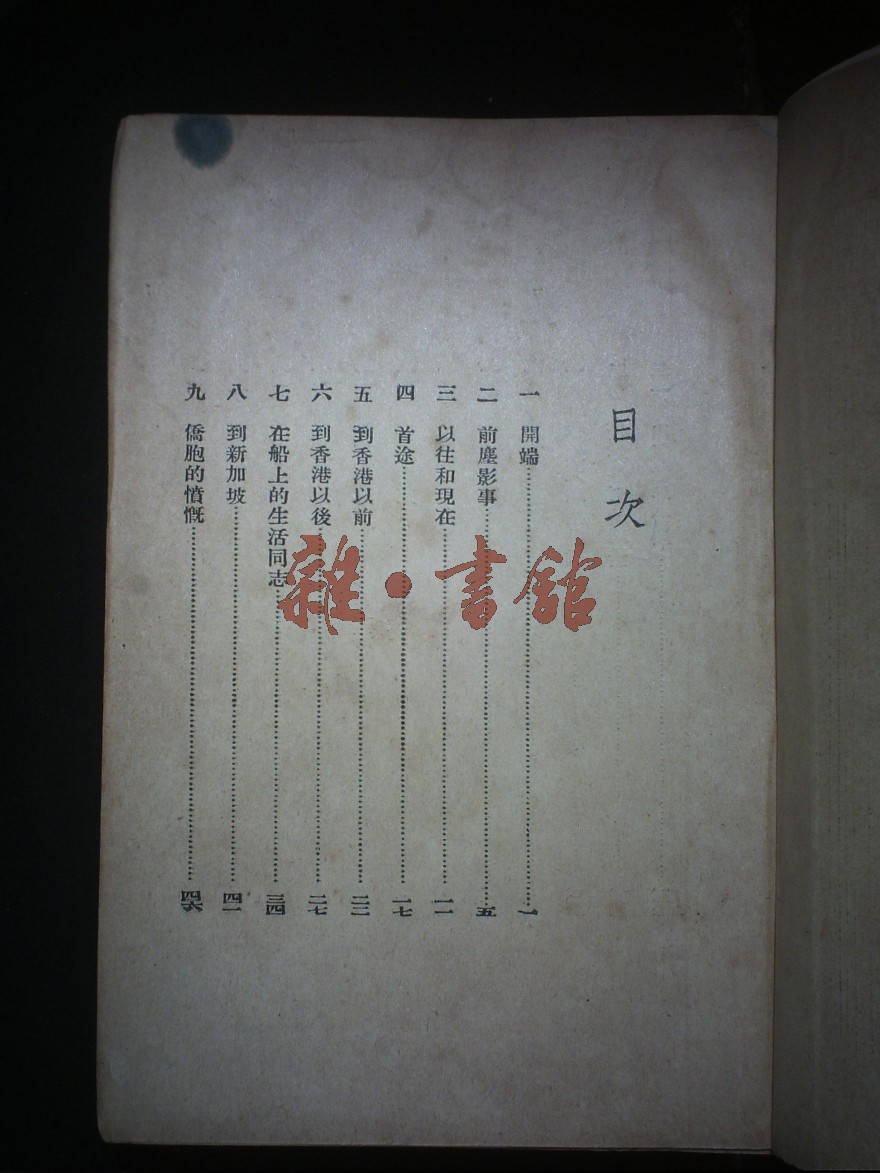 目次
一 開端……一
二 前塵影事……五
三 以往和現在……一一
四 首途……一七
五 到香港以前……二二
六 到香港以後……二七
七 在船上的生活同志……三四
八 到新加坡……四一
九 僑胞的憤慨……四六
雜·書館